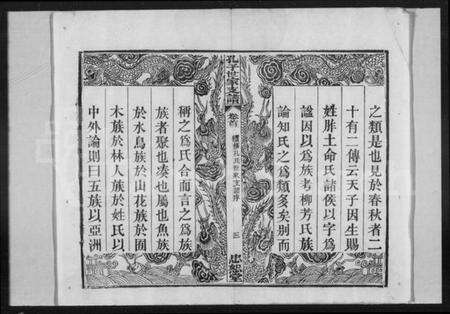 之類是也見於春秋者二
十有二傳云天子因生賜
姓胙土命氏諸侯以字為
諡因以為族考柳芳氏族
論知氏之為類多矣別而
孔子世家支譜
卷首
三
忠恕堂
稱之為氏合而言之為族
族者聚也湊也屬也魚族
於水鳥族於山花族於囿
木族於林人族於姓氏以
中外論則曰五族以亞洲